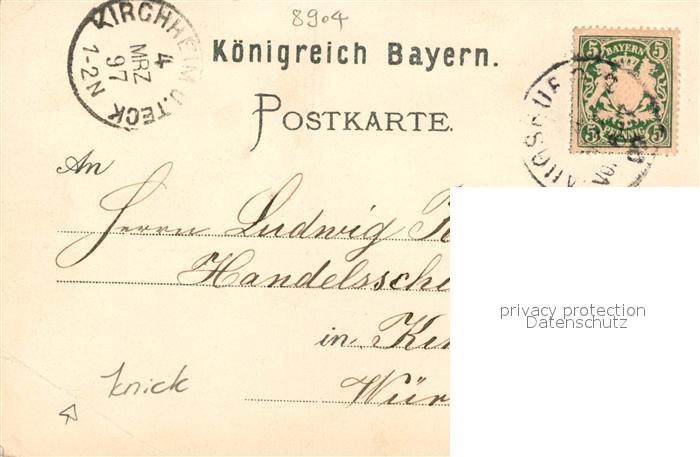 8904
KIRCHHEIM U. TECK
4
MRZ
97
1-2 N
Königreich Bayern.
POSTKARTE.
5 BAYERN 5
5 PFENNIG 5
AUGSBURG
An
Herrn Ludwig
Handelssch
in
Wür
privacy protection
Datenschutz
knick